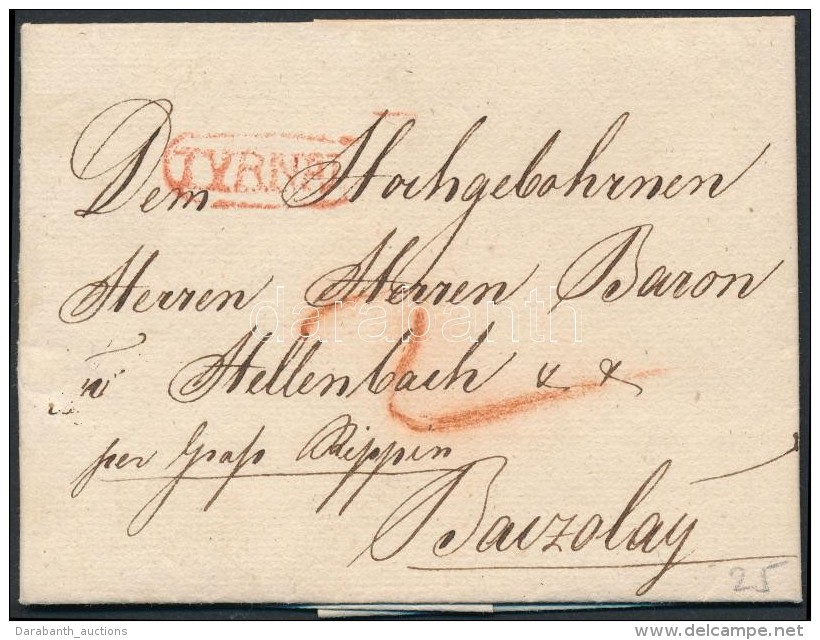 TYRNAU
Dem Hochgebohrnen
Herren Herren Baron
v Stellenbach x x
per Groß Rippin
Baizolay
2
25
darabanth
Darabanth_auctions
delcampe.net